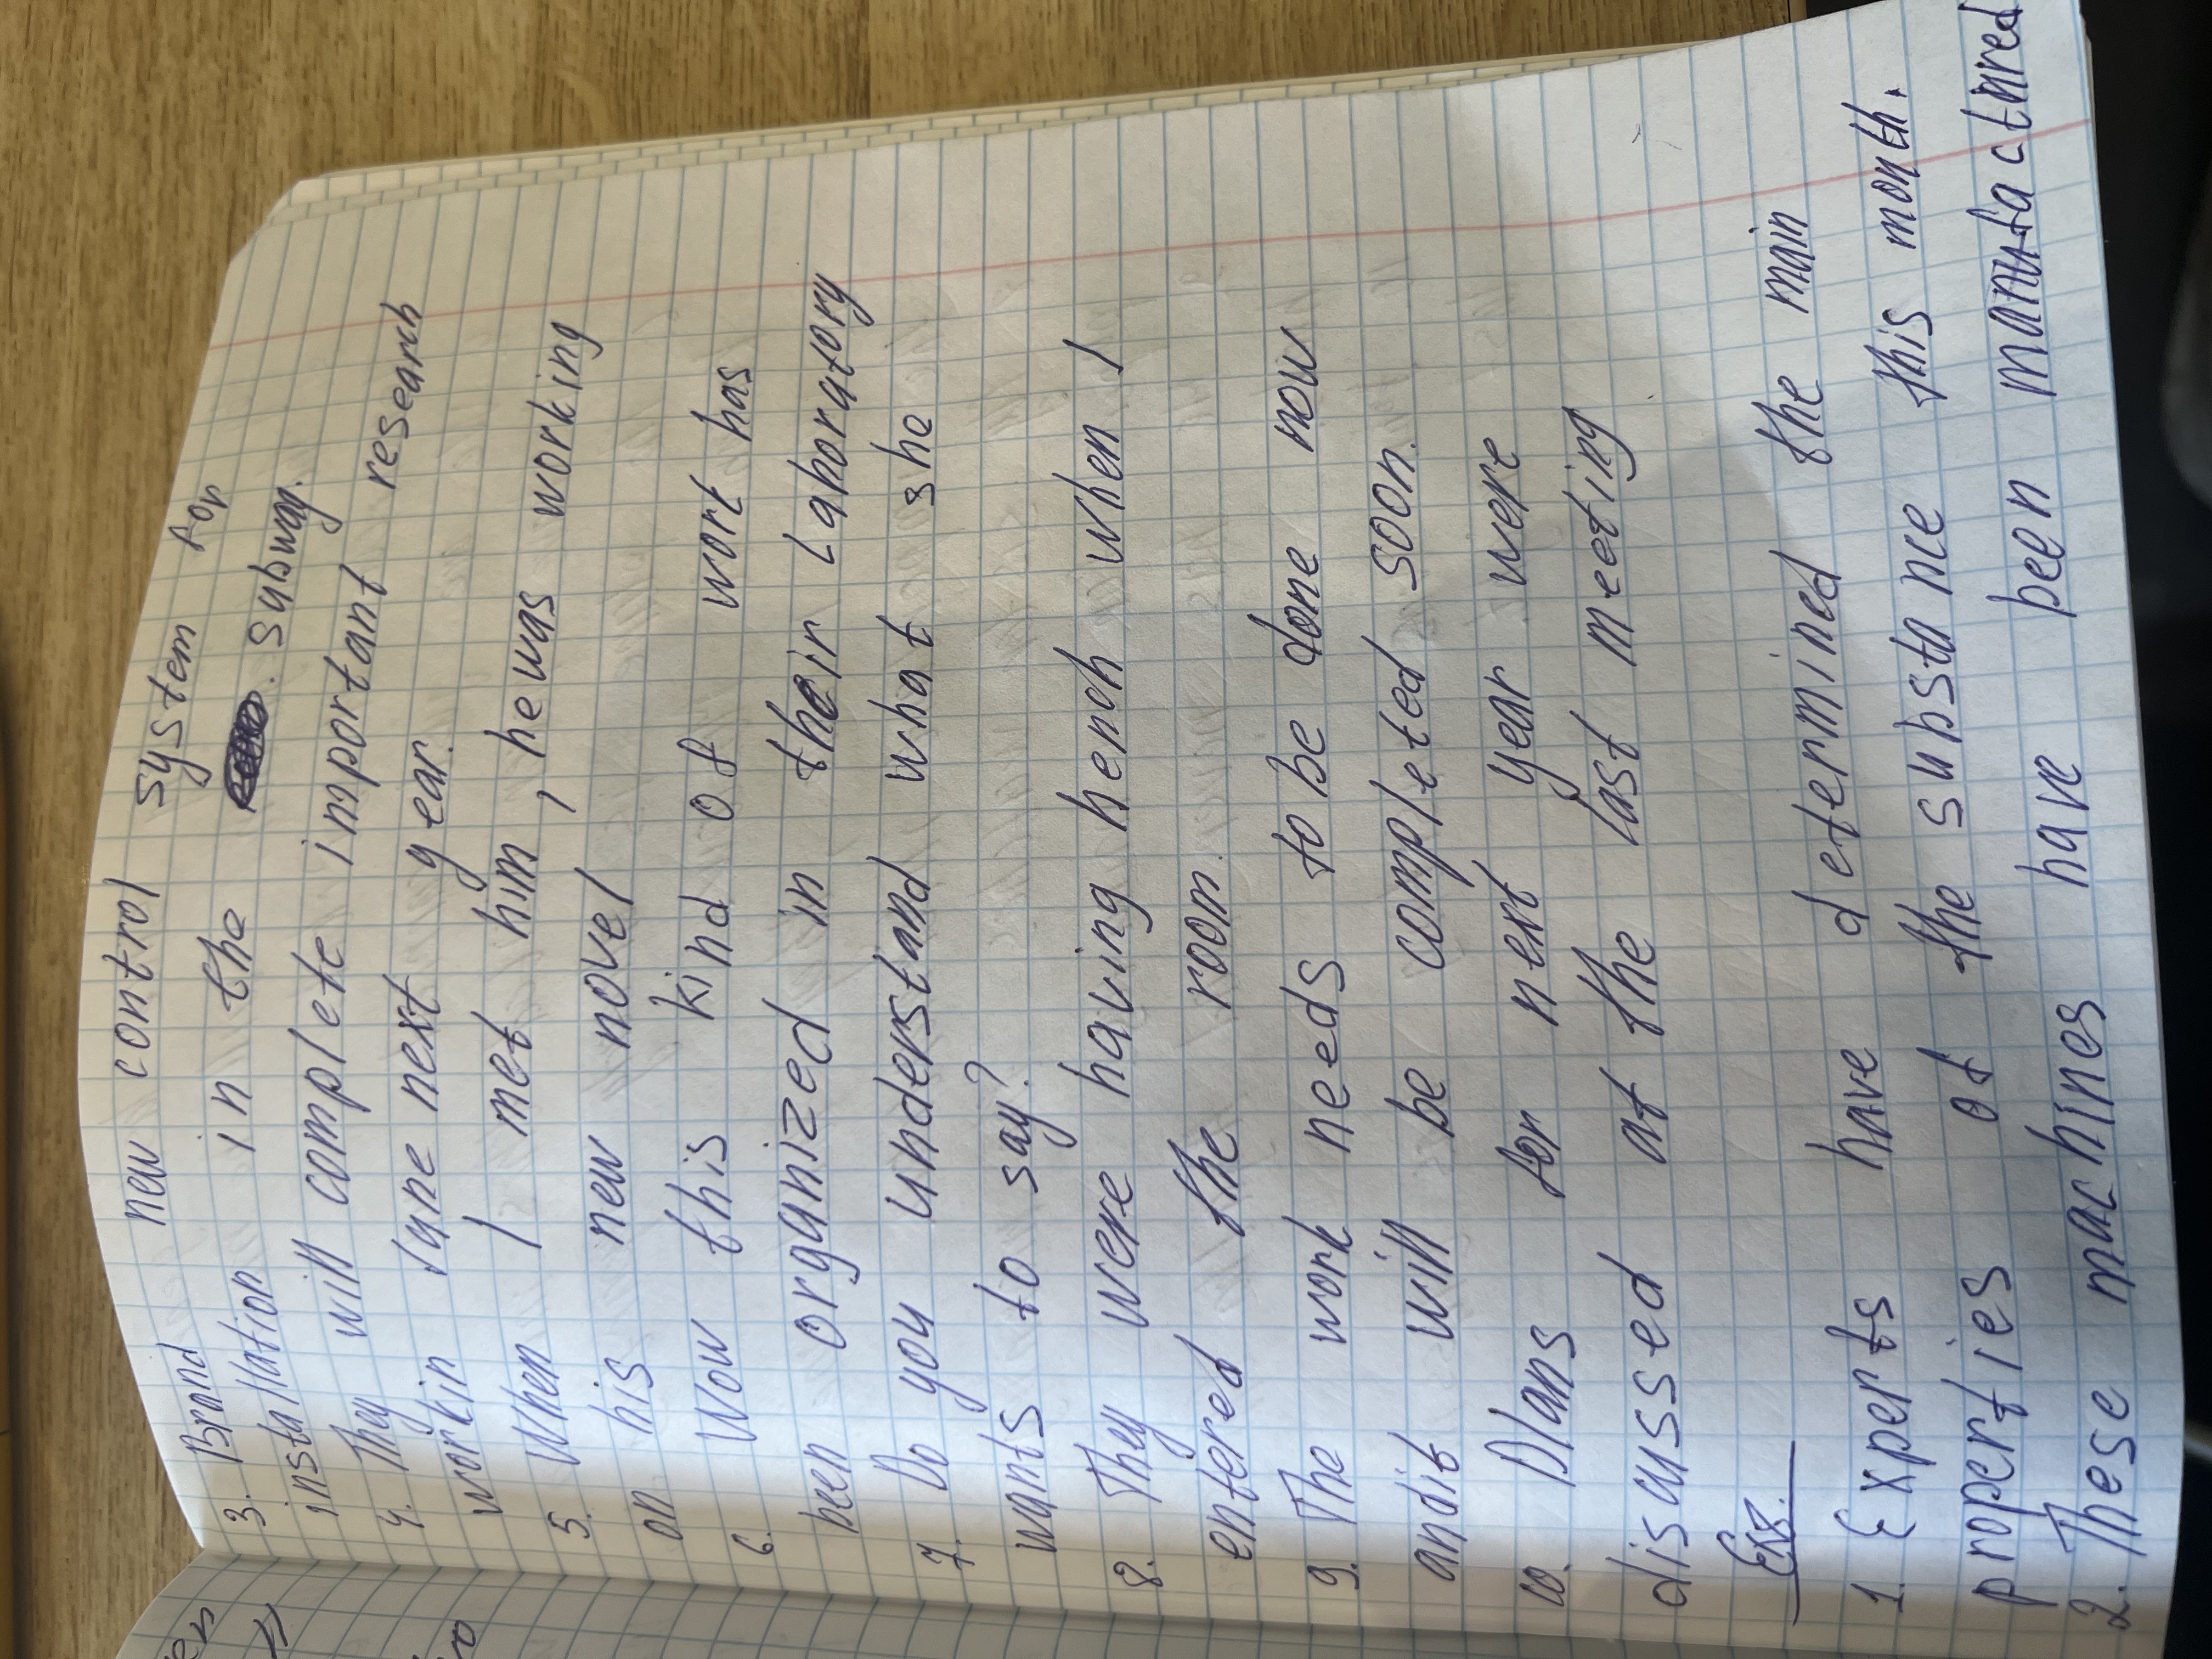 3. Brand new control system for
installation in the subway.
4. They will complete important research
work in June next year.
5. When I met him, he was working
on his new novel
6. Wow this kind of work has
been organized in their Laboratory
7. Do you understand what she
wants to say?
8. They were having hench when I
entered the room.
9. The work needs to be done now
and it will be completed soon.
10. Plans for next year were
discussed at the last meeting
1. Experts have determined the main
properties of the substance this month.
2. These machines have been manufactured